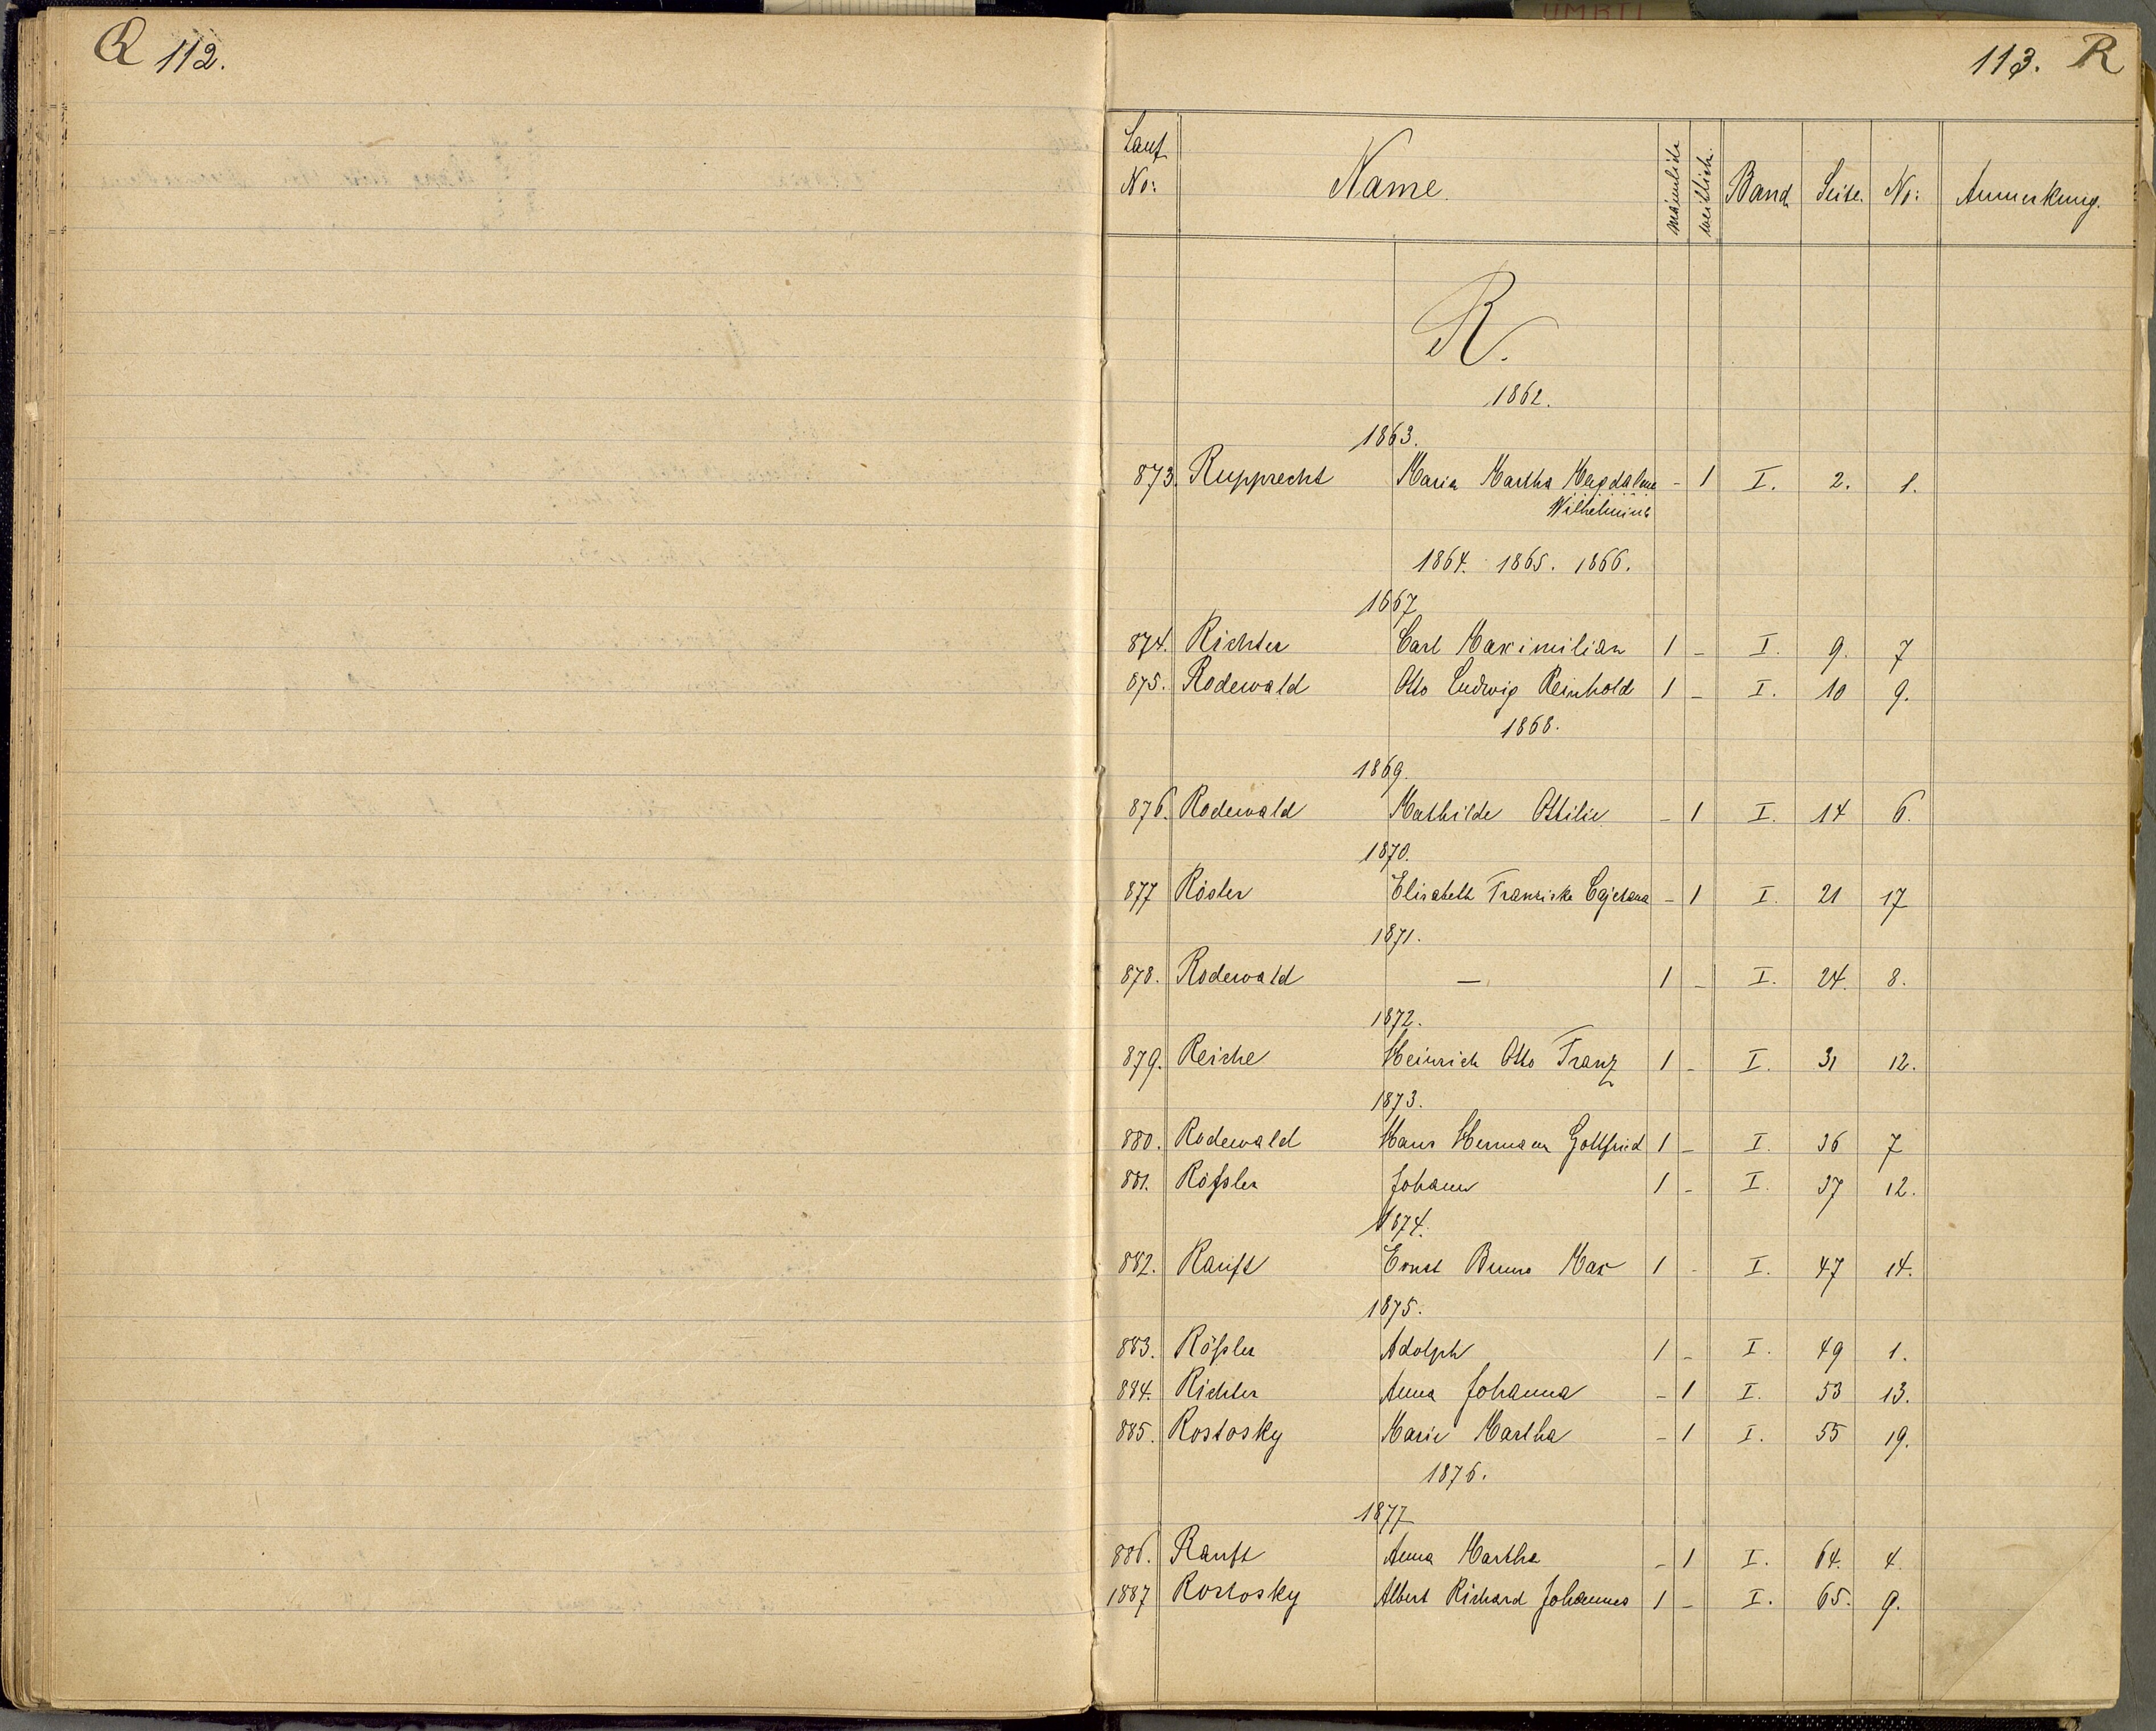 Q 112.
113. R
Lauf. No: Name. männlich weiblich. Band Seite. No: Anmerkung.
R.
1862.
1863.
873. Rupprecht Maria Martha Magdalena - 1 I. 2. 1.
Wilhelmine
1864. 1865. 1866.
1867
874. Richter Carl Maximilian 1 - I. 9. 7
875. Rodewald Otto Ludwig Reinhold 1 - I. 10 9.
1868.
1869.
876. Rodewald Mathilde Ottilie - 1 I. 14 6.
1870.
877 Röster Elisabeth Franziska Cajetana - 1 I. 21 17
1871.
878. Rodewald — 1 - I. 24. 8.
1872.
879. Reiche Heinrich Otto Franz 1 - I. 31 12.
1873.
880. Rodewald Hans Hermann Gottfried 1 - I. 36 7
881. Rößler Johann 1 - I. 37 12.
1874.
882. Ranft Ernst Bruno Max 1 - I. 47 14.
1875.
883. Rößler Adolph 1 - I. 49 1.
884. Richter Anna Johanna - 1 I. 53 13.
885. Rostosky Marie Martha - 1 I. 55 19.
1876.
1877
886. Ranft Anna Martha - 1 I. 64. 4.
1887 Rostosky Albert Richard Johannes 1 - I. 65. 9.